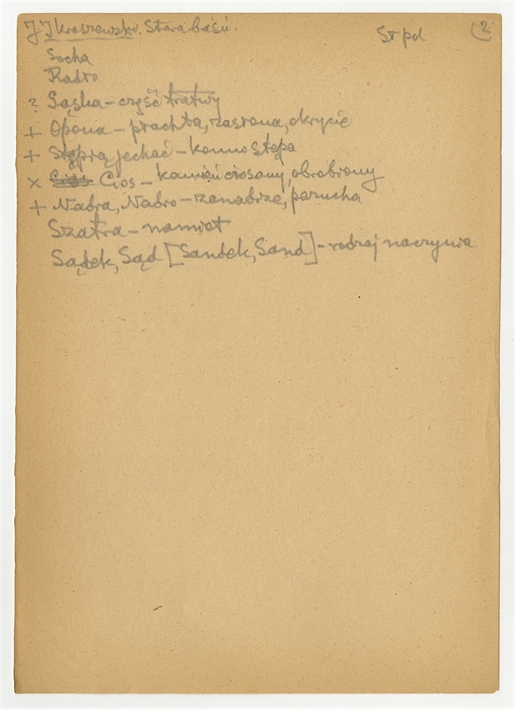 J I Kraszewski. Stara baśń. St pol (2
Socha
Radło
? Sąska – część tratwy
+ Opona – płachta, zasłona, okrycie
+ Stępią jechać – konno stępa
x Cios – kamień ciosany, obrobiony
+ Nadra, Nadro – zanadrze, pazucha
Szatra – namiot
Sądek, Sąd [Sandek, Sand] – rodzaj naczynia